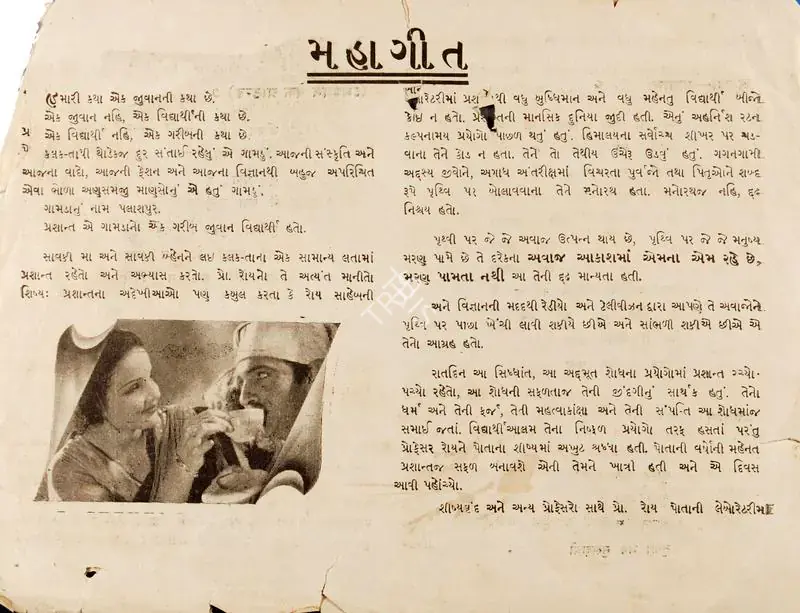 મહાગીત
હમારી કથા એક જુવાનની કથા છે.
એક જુવાન નહિ, એક વિદ્યાર્થીની કથા છે.
એક વિદ્યાર્થી નહિ, એક ગરીબની કથા છે.
કલકત્તાથી થોડેકજ દુર સંતાઈ રહેલું એ ગામડું. આજની સંસ્કૃતિ અને
આજના વાદો, આજની ફેશન અને આજના વિજ્ઞાનથી બહુજ અપરિચિત
એવા ભોળા અણુસમજી માણસોનું એ હતું ગામડું.
ગામડાનું નામ પલાશપુર.
પ્રશાન્ત એ ગામડાનો એક ગરીબ જુવાન વિદ્યાર્થી હતો.
સાવકી મા અને સાવકી બ્હેનને લઇ કલકત્તાના એક સામાન્ય લતામાં
પ્રશાન્ત રહેતો અને અભ્યાસ કરતો. પ્રો. રાયનો તે અત્યંત માનીતો
શિષ્ય: પ્રશાન્તના અદેખીઆઓ પણ કબુલ કરતા કે રોય સાહેબની
પ્રશાન્તથી વધુ બુધ્ધિમાન અને વધુ મહેનતુ વિદ્યાર્થી બીજો
કોઇ ન હતો. માનસિક દુનિયા જુદી હતી. એનું અહર્નિશ રટન
કલ્પનામય પ્રયોગો પાછળ થતું હતું. હિમાલયના સર્વોચ્ચ શીખર પર ચડ-
વાના તેને કોડ ન હતા. તેને તો તેથીય ઉંચેરૂં ઉડવું હતું. ગગનગામી
અદ્રસ્ય જીવોને, અગાધ અંતરીક્ષમાં વિચરતા પુર્વજો તથા પિતૃઓને શબ્દ
રૂપે પૃથ્વિ પર બોલાવવાના તેને મનોરથ હતા. મનોરથજ નહિ, દ્રઢ
નિશ્ચય હતો.
પૃથ્વી પર જે જે અવાજ ઉત્પન્ન થાય છે, પૃથ્વિ પર જે જે મનુષ્ય
મરણ પામે છે તે દરેકના અવાજ આકાશમાં એમના એમ રહે છે,
મરણ પામતા નથી આ તેની દ્રઢ માન્યતા હતી.
અને વિજ્ઞાનની મદદથી રેડીયો અને ટેલીવીઝન દ્વારા આપણે તે અવાજોને
પૃથ્વિ પર પાછા ખેંચી લાવી શકાયે છીએ અને સાંભળી શકીએ છીએ એ
તેનો આગ્રહ હતો.
રાતદિન આ સિધ્ધાંત, આ અદ્દભૂત શોધના પ્રયોગોમાં પ્રશાન્ત રચ્યો-
પચ્યો રહેતો, આ શોધની સફળતાજ તેની જીંદગીનું સાર્થક હતું. તેનો
ધર્મ અને તેની ફર્જ, તેની મહત્વાકાંક્ષા અને તેની સંપત્તિ આ શોધમાંજ
સમાઈ જતાં. વિદ્યાર્થીઆલમ તેના નિષ્ફળ પ્રયોગો તરફ હસતાં પરંતુ
પ્રોફેસર રાયને પોતાના શીષ્યમાં અખુટ શ્રધ્ધા હતી. પોતાની વર્ષોની મહેનત
પ્રશાન્તજ સફળ બનાવશે એની તેમને ખાત્રી હતી અને એ દિવસ
આવી પહોંચ્યો.
શીષ્યવૃંદ અને અન્ય પ્રોફેસરો સાથે પ્રો. રોય પોતાની લેબોરેટરીમાં